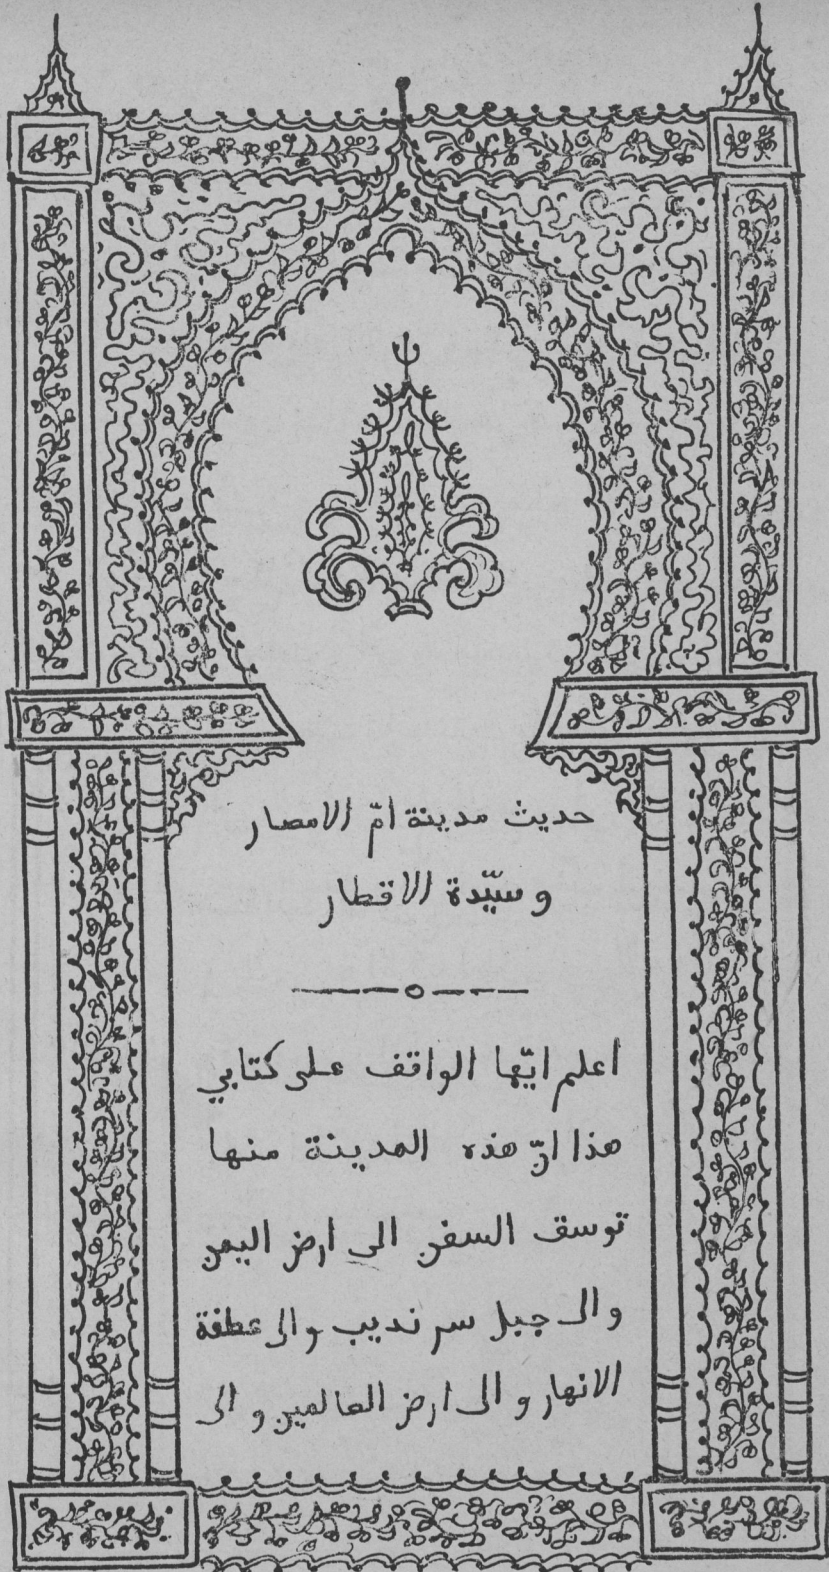 حديث مدينة امّ الامصار
و سيّدة الاقطار
اعلم ايّها الواقف على كتابي
هذا انّ هذه المدينة منها
توسق السفن الى ارض اليمن
والى جبل سرنديب والى عطفة
الانهار و الى ارض العالمين و الى